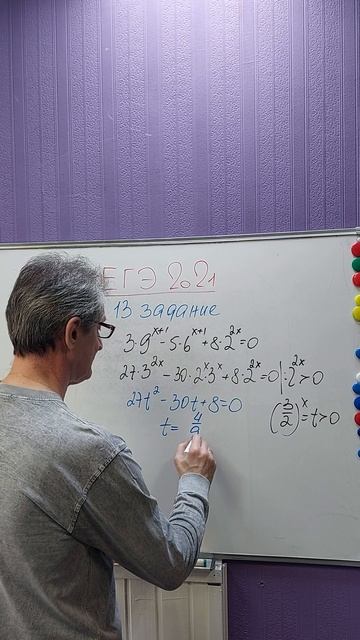 ЕГЭ 2021
13 задание
3·9^(x+1) - 5·6^(x+1) + 8·2^(2x) = 0
27·3^(2x) - 30·2^x·3^x + 8·2^(2x) = 0 | : 2^(2x) > 0
27t² - 30t + 8 = 0
(3/2)^x = t > 0
t = 4/9